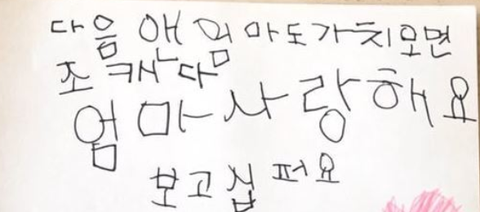 다음 앤 엄마도 가치 오면
조켔다
엄마 사랑해요
보고십퍼요